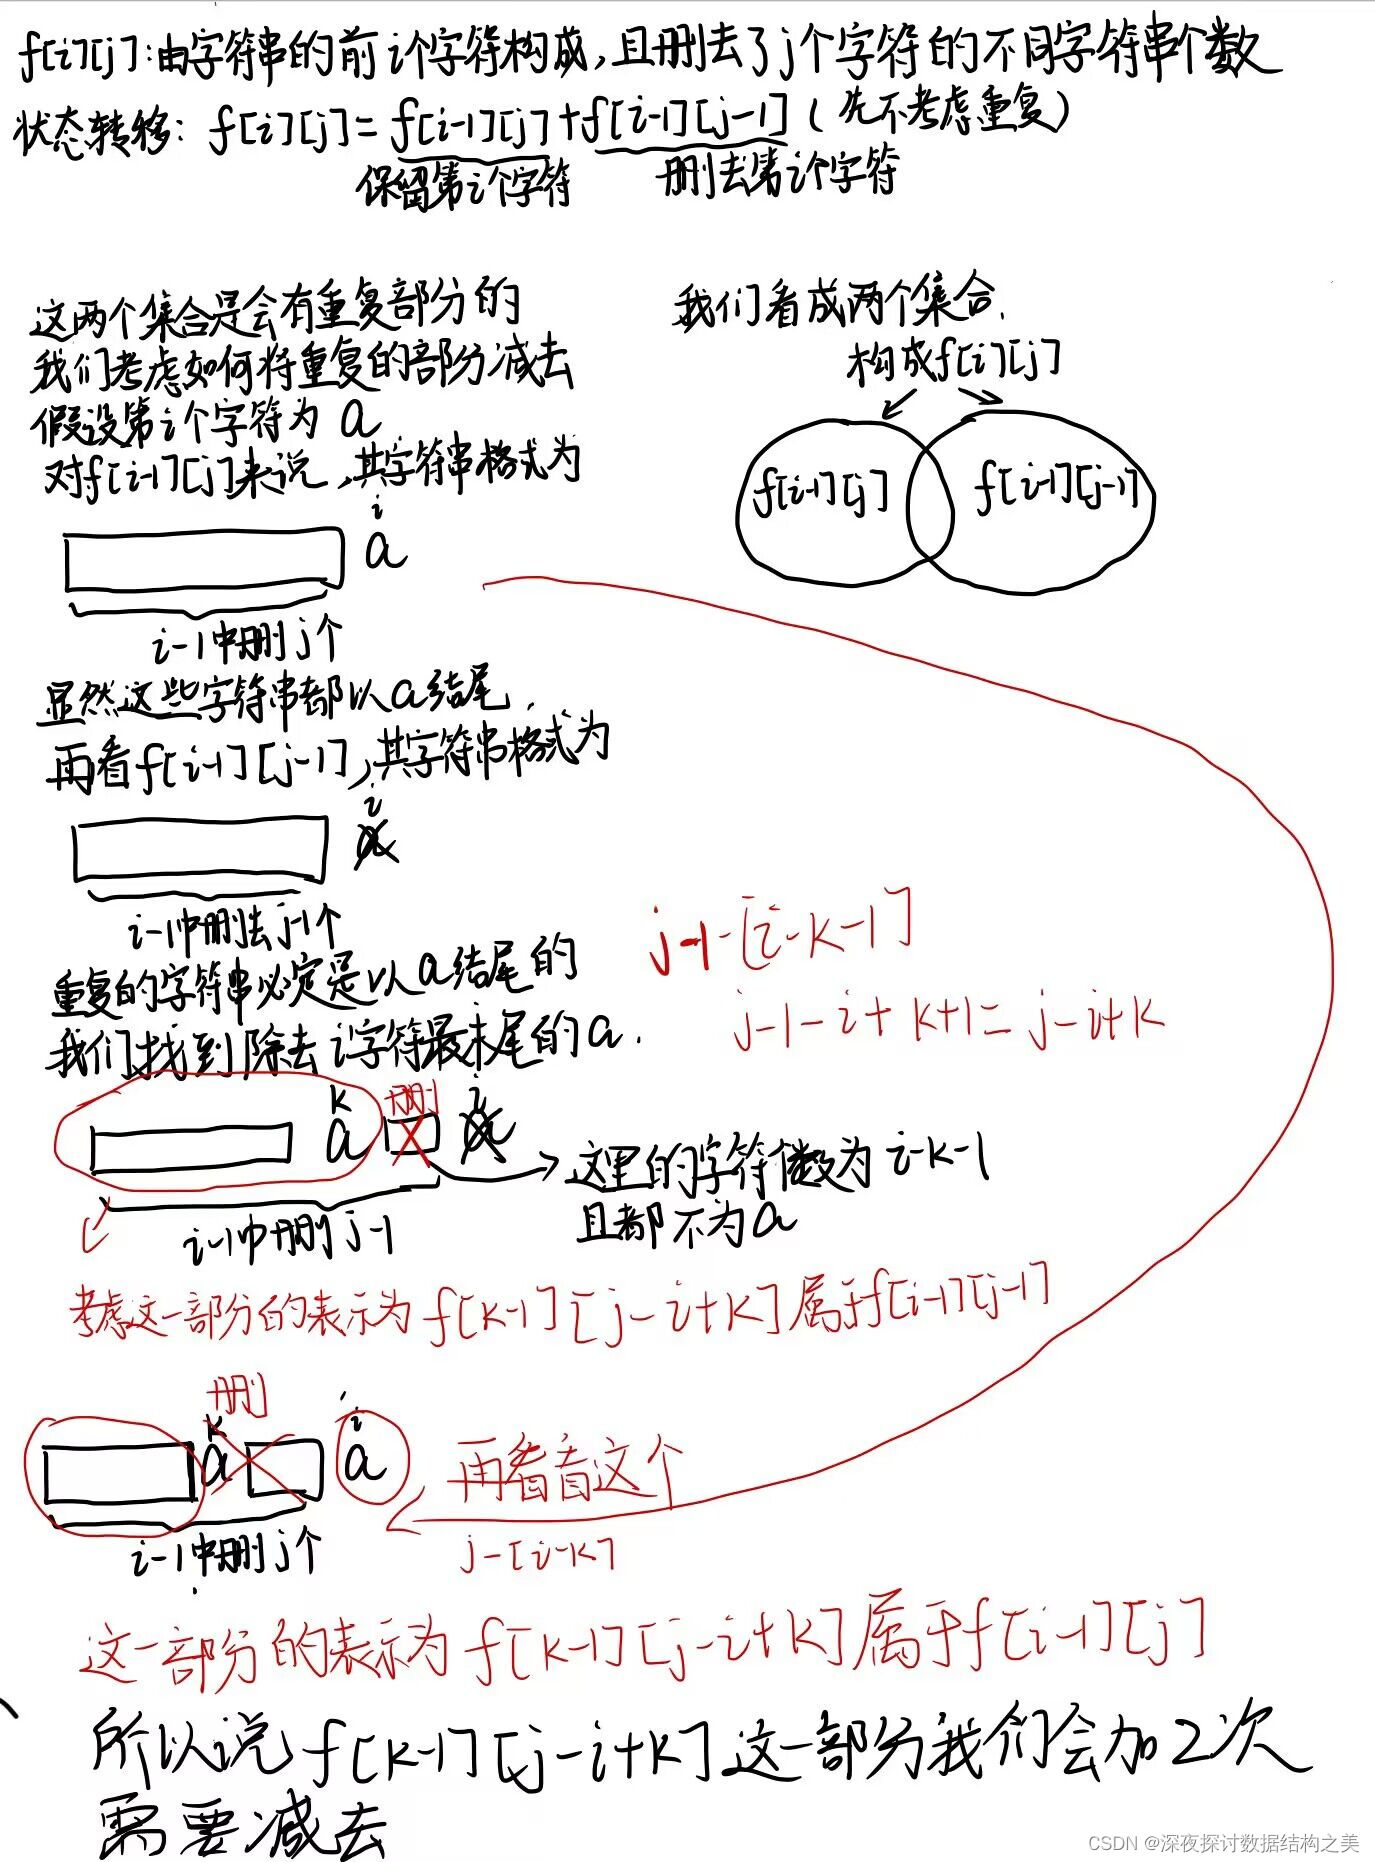 f[i][j]:由字符串的前i个字符构成,且删去了j个字符的不同字符串个数
状态转移: f[i][j]=f[i-1][j]+f[i-1][j-1](先不考虑重复)
保留第i个字符 删去第i个字符
我们看成两个集合.
构成f[i][j]
f[i-1][j] f[i-1][j-1]
这两个集合是会有重复部分的
我们考虑如何将重复的部分减去
假设第i个字符为a
对f[i-1][j]来说,其字符串格式为
i
a
i-1中删j个
显然这些字符串都以a结尾,
再看f[i-1][j-1],其字符串格式为
i
a
i-1中删去j-1个
重复的字符串必定是以a结尾的
我们找到除去i字符最末尾的a.
j-1-[i-k-1]
j-1-i+k+1=j-i+k
k 删 i
a a
这里的字符个数为i-k-1
且都不为a
i-1中删j-1
考虑这一部分的表示为f[k-1][j-i+k]属于f[i-1][j-1]
删
k i
a a
再看看这个
i-1中删j个
j-[i-k]
这一部分的表示为f[k-1][j-i+k]属于f[i-1][j]
所以说f[k-1][j-i+k]这一部分我们会加2次
需要减去
CSDN @深夜探讨数据结构之美